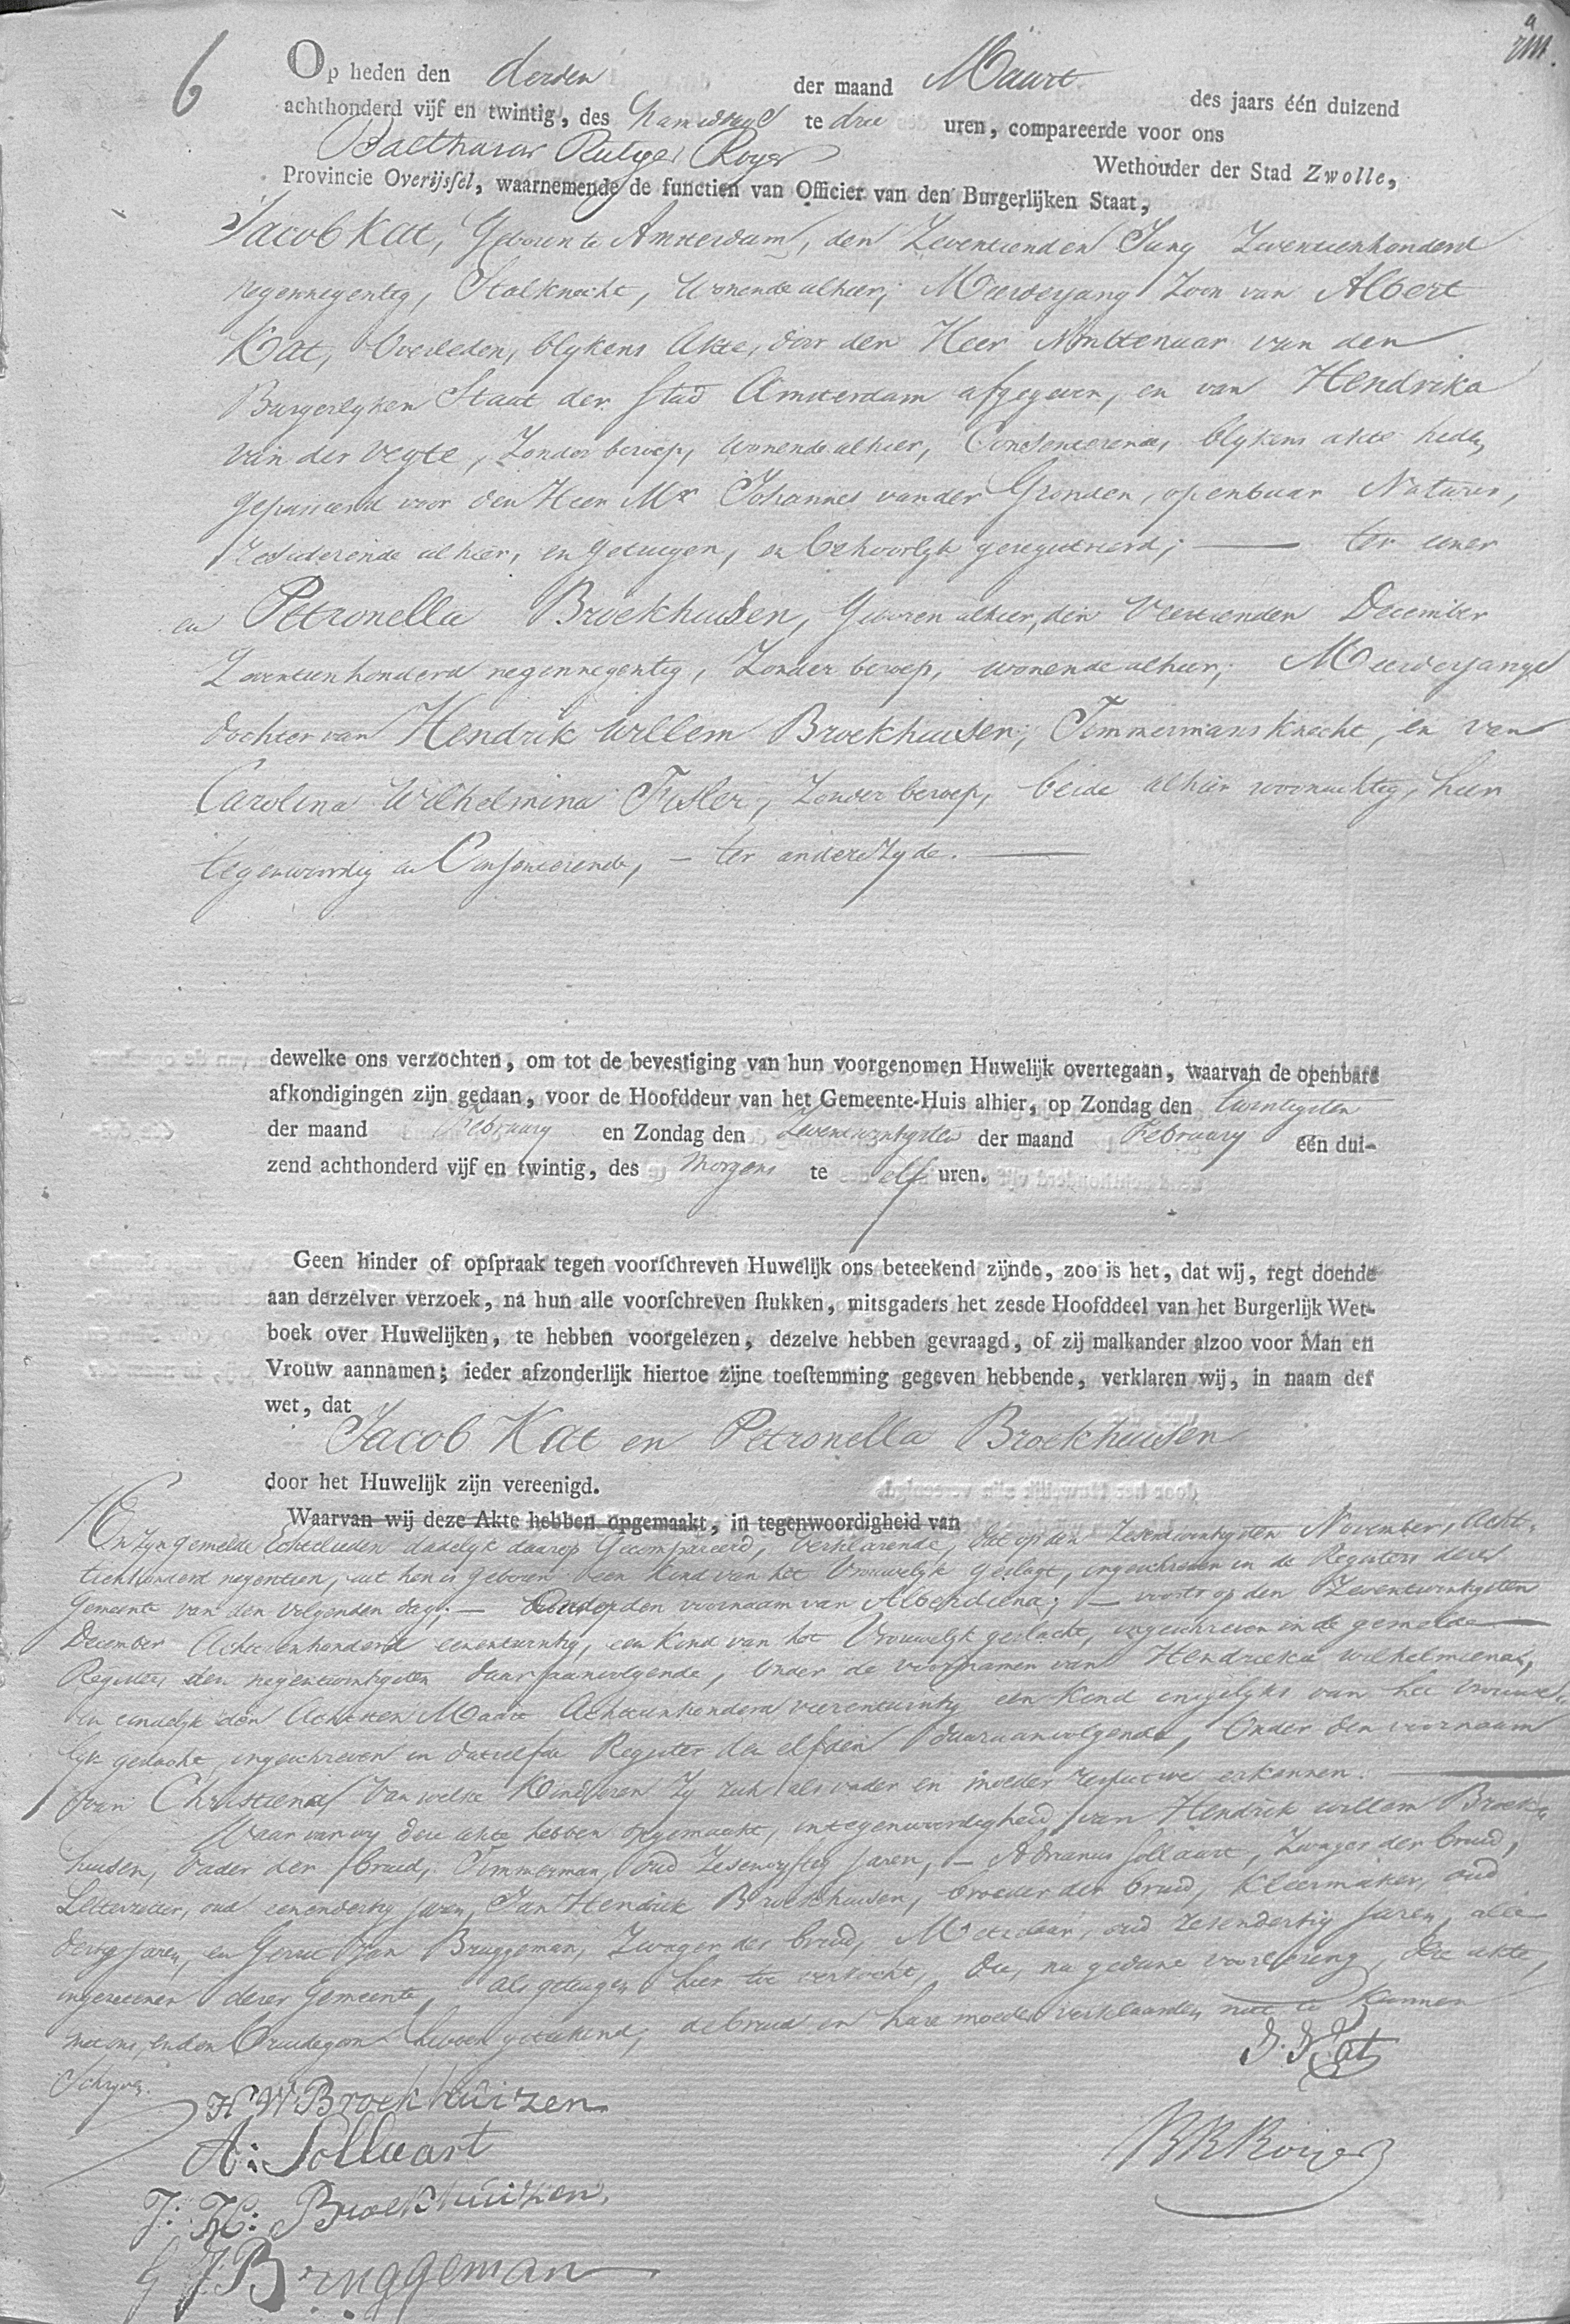 6
Op heden den derden der maand Maart des jaars één duizend
achthonderd vijf en twintig, des namiddags te drie uren, compareerde voor ons
Balthasar Rutger Royer Wethouder der Stad Zwolle,
Provincie Overijsſel, waarnemende de functien van Officier van den Burgerlijken Staat,
Jacob Kat, Geboren te Amsterdam, den Zeventienden Juny Zeventienhonderd
negennegentig, Stalknecht, Wonende alhier; Meerderjarig Zoon van Albert
Kat, Overleden, blykens Akte, door den Heer Ambtenaar van den
Burgerlyken Staat der Stad Amsterdam afgegeven, en van Hendrika
van der Vegte, Zonder beroep, Wonende alhier, Consenterende, blykens akte heden
Gepasseerd voor den Heer Mr Johannes vander Gronden, openbaar Notaris,
residerende alhier, en Getuigen, en behoorlyk geregistreerd; — ter eener
en Petronella Broekhuisen, Geboren alhier, den Veertienden December
Zeventienhonderd negennegentig, Zonder beroep, wonende alhier; Meerderjarige
dochter van Hendrik Willem Broekhuisen, Timmermans Knecht, en van
Carolina Wilhelmina Fisler, Zonder beroep, beide alhier woonachtig, hier
tegenwoordig en Consenterende, — ter andere Zyde. —
dewelke ons verzochten, om tot de bevestiging van hun voorgenomen Huwelijk overtegaan, waarvan de openbare
afkondigingen zijn gedaan, voor de Hoofddeur van het Gemeente-Huis alhier, op Zondag den twintigsten
der maand February en Zondag den Zevenentwintigsten der maand February één dui-
zend achthonderd vijf en twintig, des Morgens te elf uren.
Geen hinder of opſpraak tegen voorſchreven Huwelijk ons beteekend zijnde, zoo is het, dat wij, regt doende
aan derzelver verzoek, na hun alle voorſchreven ſtukken, mitsgaders het zesde Hoofddeel van het Burgerlijk Wet-
boek over Huwelijken, te hebben voorgelezen, dezelve hebben gevraagd, of zij malkander alzoo voor Man en
Vrouw aannamen; ieder afzonderlijk hiertoe zijne toeſtemming gegeven hebbende, verklaren wij, in naam der
wet, dat
Jacob Kat en Petronella Broekhuisen
door het Huwelijk zijn vereenigd.
Waarvan wij deze Akte hebben opgemaakt, in tegenwoordigheid van
En zyn gemelde Echtelieden dadelyk daarop Gecompareerd, verklarende, dat op den Zevenentwintigsten November, Acht-
tienhonderd negentien, uit hen is geboren een Kind van het Vrouwelyk Geslagt, ingeschreven in de Registers dezer
Gemeente van den volgenden dag; — onder den voornaam van Alberdiena; — voorts op den Zevenentwintigsten
December Achttienhonderd eenentwintig, een Kind van het Vrouwelyk geslacht, ingeschreven in de gemelde
Register den negentwintigsten daaraanvolgende, Onder de voornamen van Hendrieka Wilhelmiena,
en eindelyk den Achtsten Maart Achttienhonderd vierentwintig een Kind insgelyks van het Vrouwe-
lyk geslacht, ingeschreven in datzelfde Register den elfden daaraanvolgende, Onder den voornaam
van Christiena, Van welke Kinderen Zy zich als vader en moeder respective erkennen. —
Waarvan wy deze akte hebben opgemaakt, in tegenwoordigheid van Hendrik Willem Broek-
huisen, Vader der bruid, Timmerman, oud Zesenvyftig jaren, — Adrianus Sollaart, Zwager der bruid,
Letterzetter, oud eenendertig jaren, Jan Hendrik Broekhuisen, broeder der bruid, Kleermaker, oud
dertig jaren, en Gerrit Jan Bruggeman, Zwager der bruid, Metselaar, oud zesendertig jaren, alle
ingezetenen dezer Gemeente, als getuigen hier toe verzocht, die, na gedane voorlezing, deze akte,
met ons, en den Bruidegom hebben geteekend, de bruid en hare moeder verklaarden niet te kunnen
Schryven.
J. Kat
H W Broekhuizen
A: Sollaart
BRRoijer
J: H: Broekhuizen.
G J Bruggeman